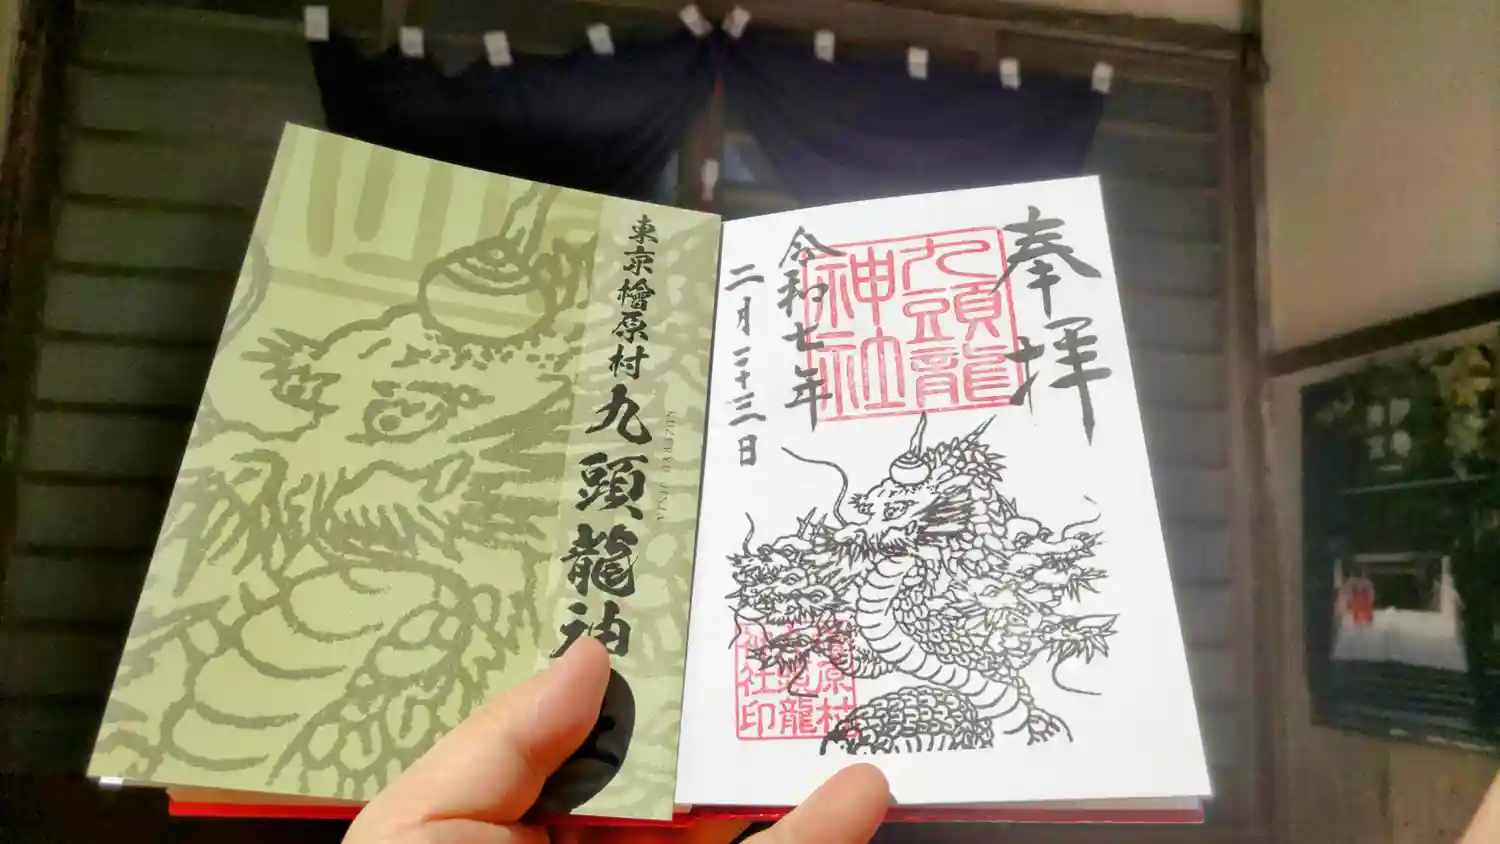 奉拝
九頭龍
神社
令和七年
二月二十三日
檜原村
九頭龍
神社印
東京檜原村
九頭龍神
KUZURYU JINJA